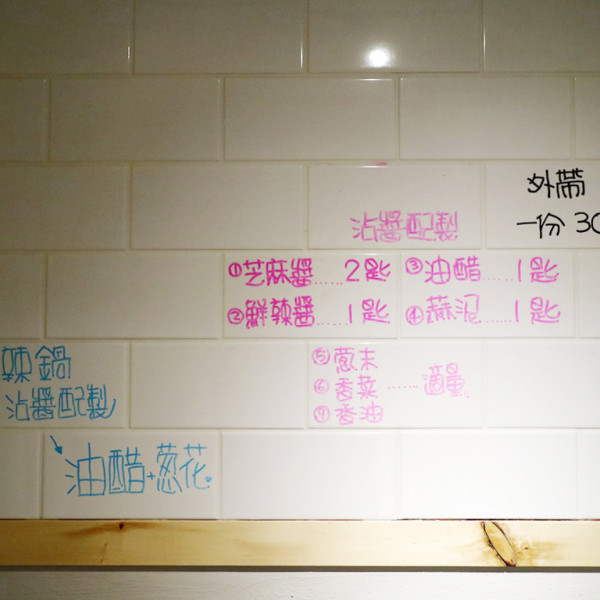 外帶
一份 30
沾醬配製
①芝麻醬......2匙 ③油醋......1匙
②鮮辣醬......1匙 ④蒜泥......1匙
⑤蔥末
⑥香菜......適量
⑦香油
辣鍋
沾醬配製
油醋+蔥花